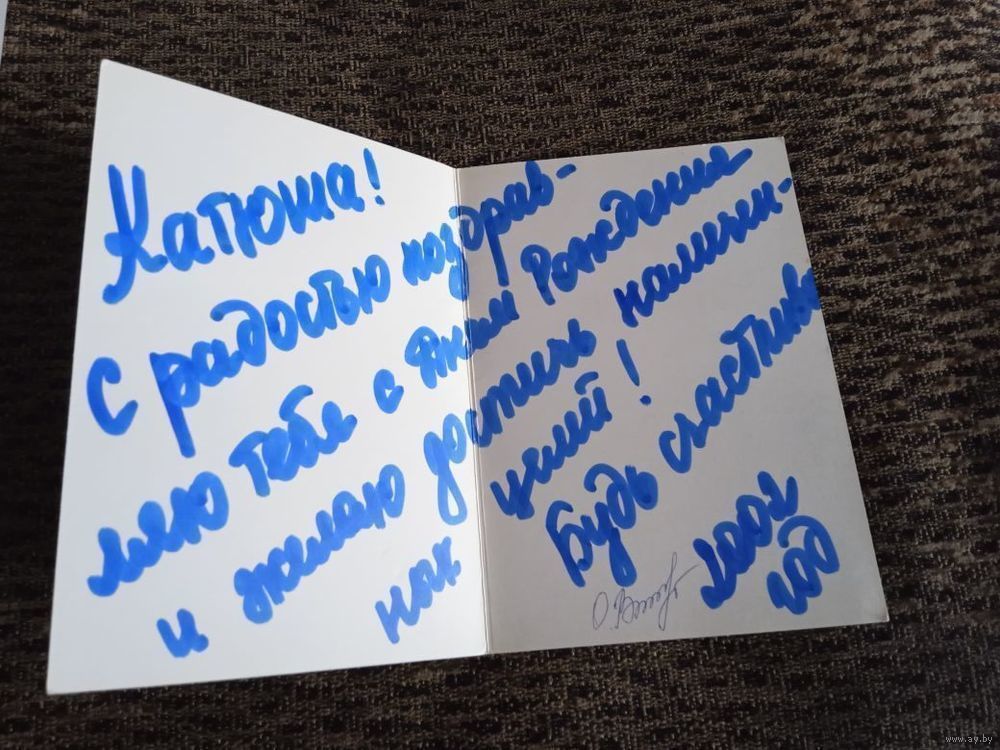 Катюша!
С радостью поздрав-
ляю тебя с Днем Рождения
и желаю достичь намечен-
ных целей!
Будь счастлива
2002
год
www.ay.by